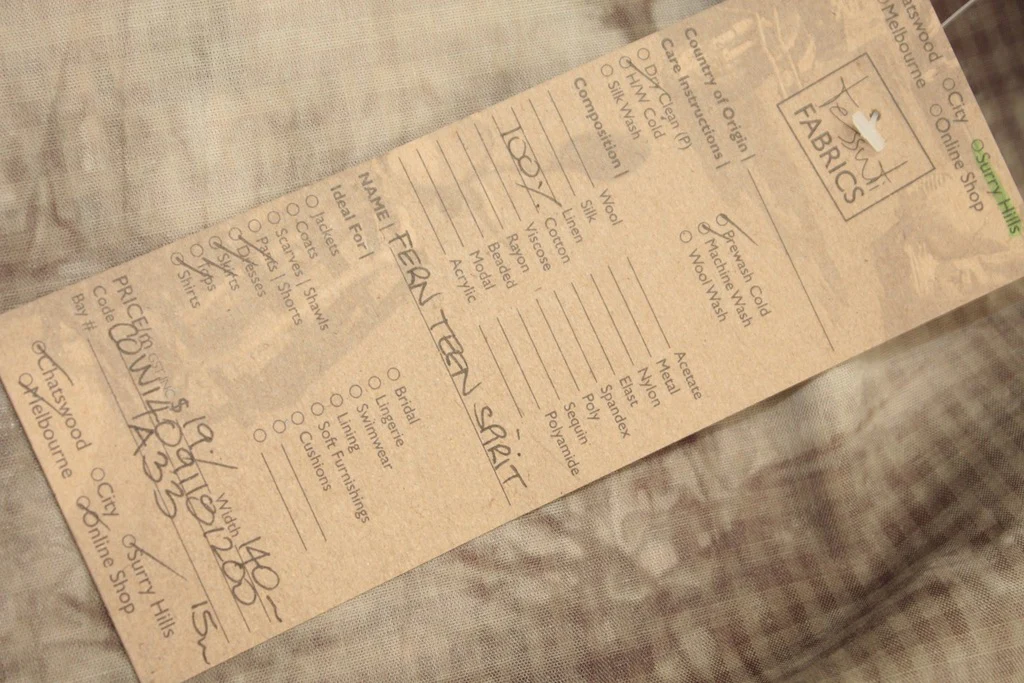 Chatswood
Melbourne
City
Online Shop
Surry Hills
Tessuti
FABRICS
Country of Origin |
Care Instructions |
Dry Clean (P)
H/W Cold
Silk Wash
Prewash Cold
Machine Wash
Wool Wash
Composition |
Wool
Silk
Linen
100% Cotton
Viscose
Rayon
Beaded
Modal
Acrylic
Acetate
Metal
Nylon
Elast
Spandex
Poly
Sequin
Polyamide
NAME | FERN TEEN SPIRIT
Ideal For |
Jackets
Coats
Scarves | Shawls
Pants | Shorts
Dresses
Skirts
Tops
Shirts
Bridal
Lingerie
Swimwear
Lining
Soft Furnishings
Cushions
PRICE $19.- Width 140
Code
Bay # A33 15m
Chatswood
Melbourne
City
Online Shop
Surry Hills